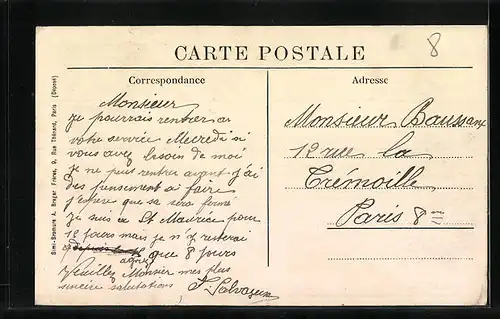 8
CARTE POSTALE
Correspondance
Adresse
Monsieur
je pourrais rentrer a
votre service Mecredi si
vous avez besoin de moi
je ne peut rentrer avant j'ai
des pensement a faire
j'espere que sa sera fermé
je suis a St Maurice pour
12 jours mais je n'y resterai
que 8 jours
Veuillez Monsier mes plus
sincire salutations
Monsieur Baussant
12 rue la
Trémoille
Paris 8me
Simi-Bromure A. Breger Frères, 9, Rue Thénard, Paris (Déposé)